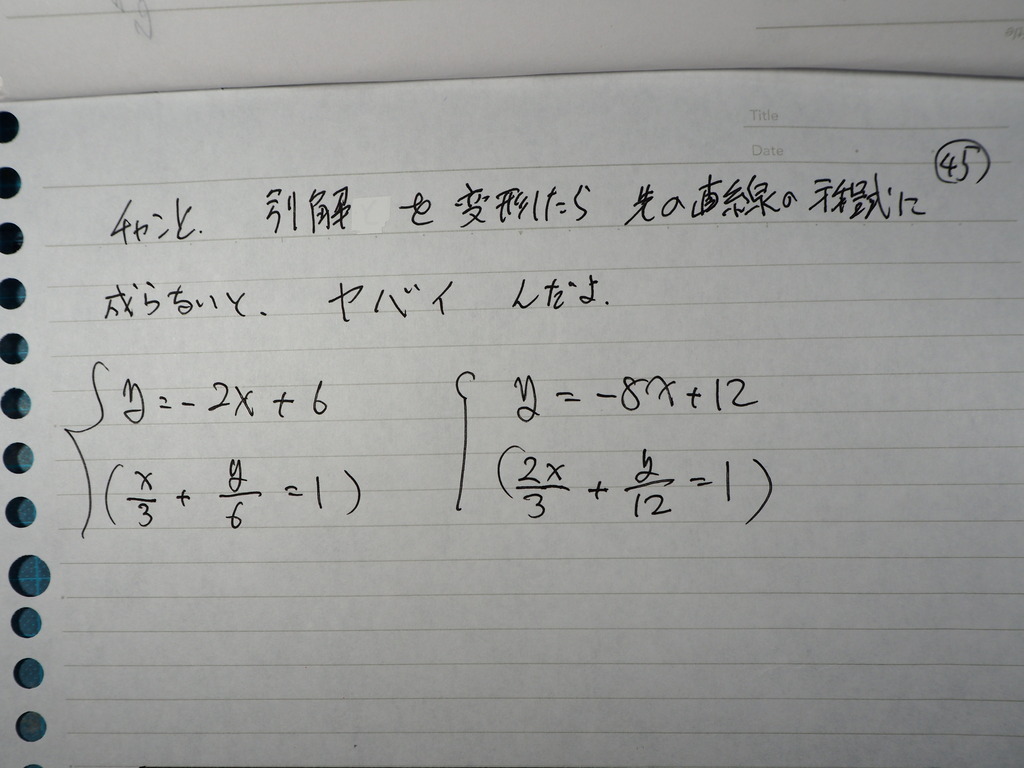 Title
Date
45
チャンと. 引解 を変形したら 先の直線の方程式に
成らないと. ヤバイ んだよ.
y = -2x + 6
(x/3 + y/6 = 1)
y = -8x + 12
(2x/3 + y/12 = 1)